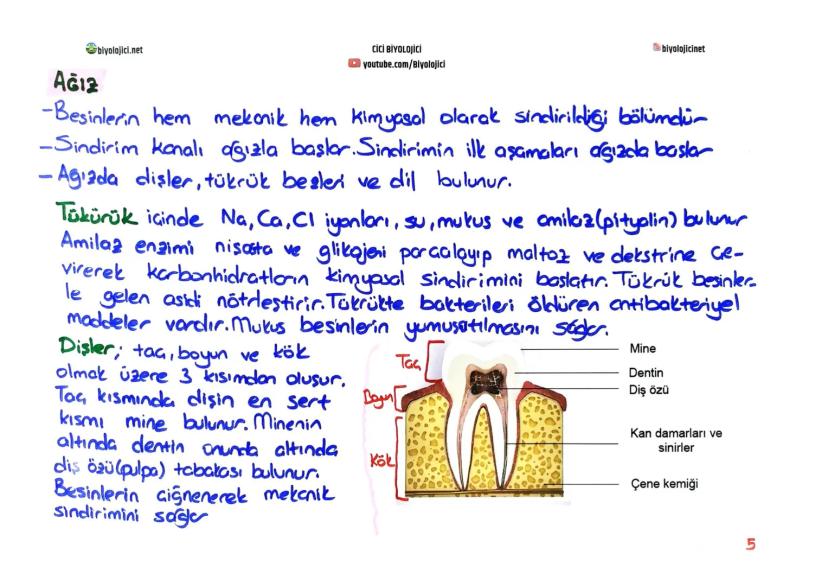 biyolojici.net
CİCİ BİYOLOJİCİ
youtube.com/Biyolojici
biyolojicinet
Ağız
-Besinlerin hem mekanik hem kimyasal olarak sindirildiği bölümdür
-Sindirim kanalı ağızla başlar. Sindirimin ilk aşamaları ağızda başlar
- Ağızda dişler, tükrük bezleri ve dil bulunur.
Tükürük içinde Na, Ca, Cl iyonları, su, mukus ve amilaz(pityalin) bulunur
Amilaz enzimi nişasta ve glikojeni parçalayıp maltoz ve dekstrine çe-
virerek karbonhidratların kimyasal sindirimini başlatır. Tükrük besinler-
le gelen asidi nötrleştirir. Tükrükte bakterileri öldüren antibakteriyel
maddeler vardır. Mukus besinlerin yumuşatılmasını sağlar.
Dişler; taç, boyun ve kök
olmak üzere 3 kısımdan oluşur.
Taç kısmında dişin en sert
kısmı mine bulunur. Minenin
altında dentin onunda altında
diş özü(pulpa) tabakası bulunur.
Besinlerin çiğnenerek mekanik
sindirimini sağlar
Taç
Boyun
Kök
Mine
Dentin
Diş özü
Kan damarları ve
sinirler
Çene kemiği
5